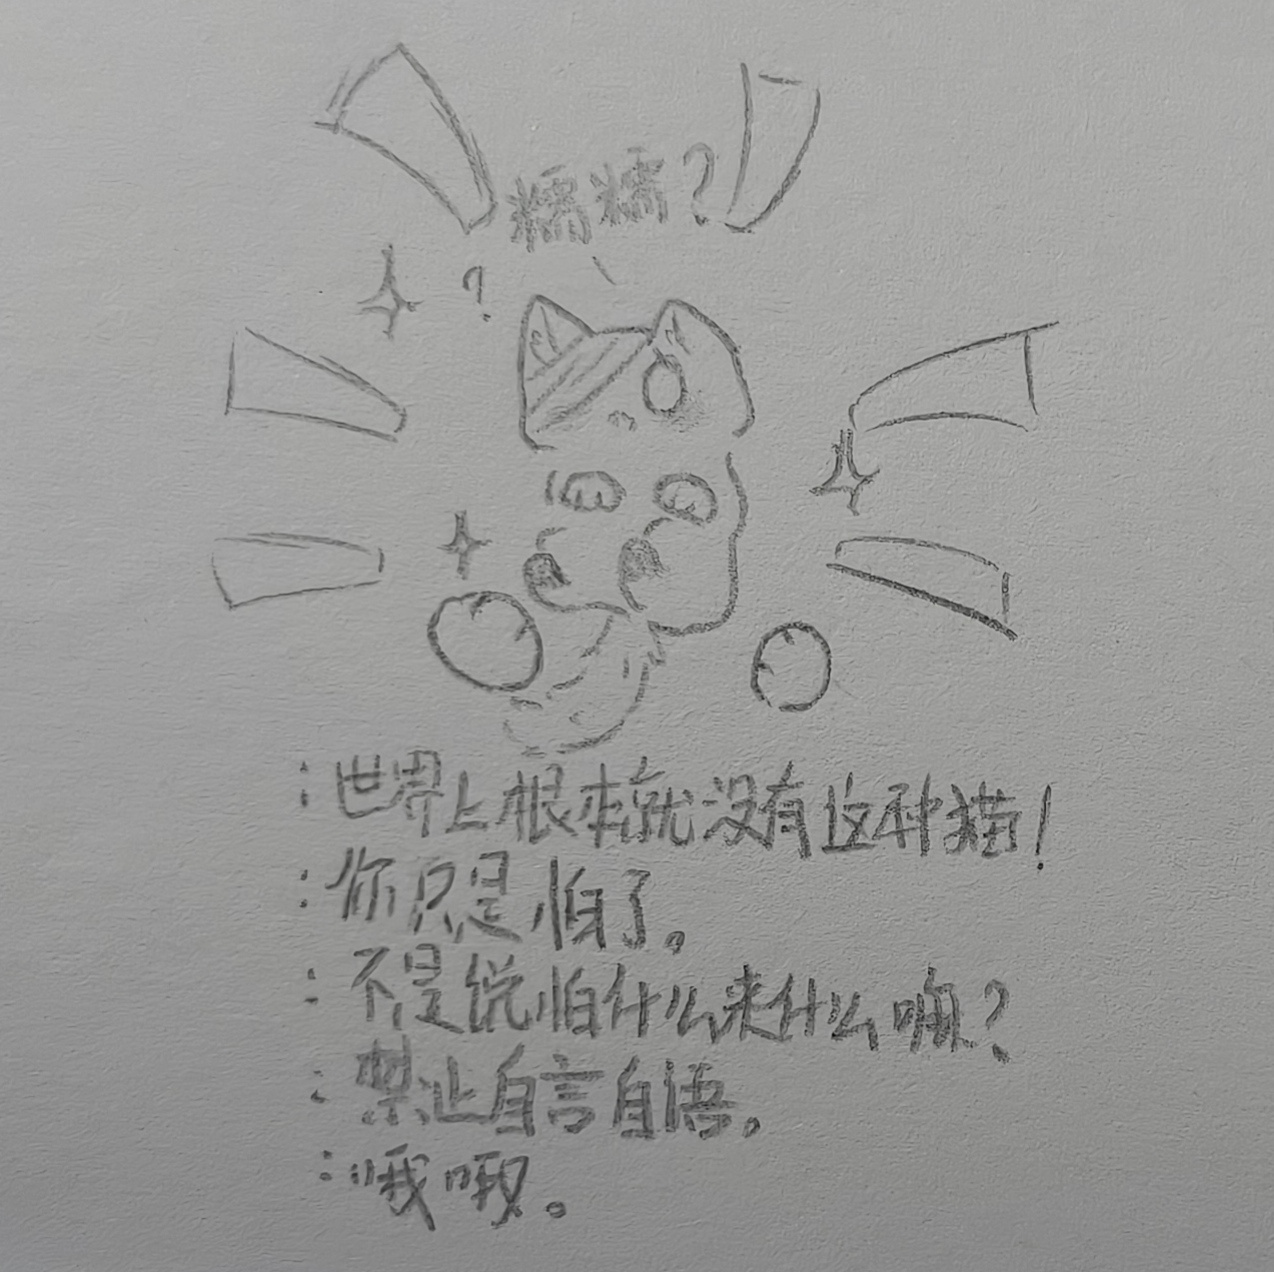 糯糯?
?
:世界上根本就没有这种猫!
:你只是怕了。
:不是说怕什么来什么嘛?
:禁止自言自语。
:哦哦。